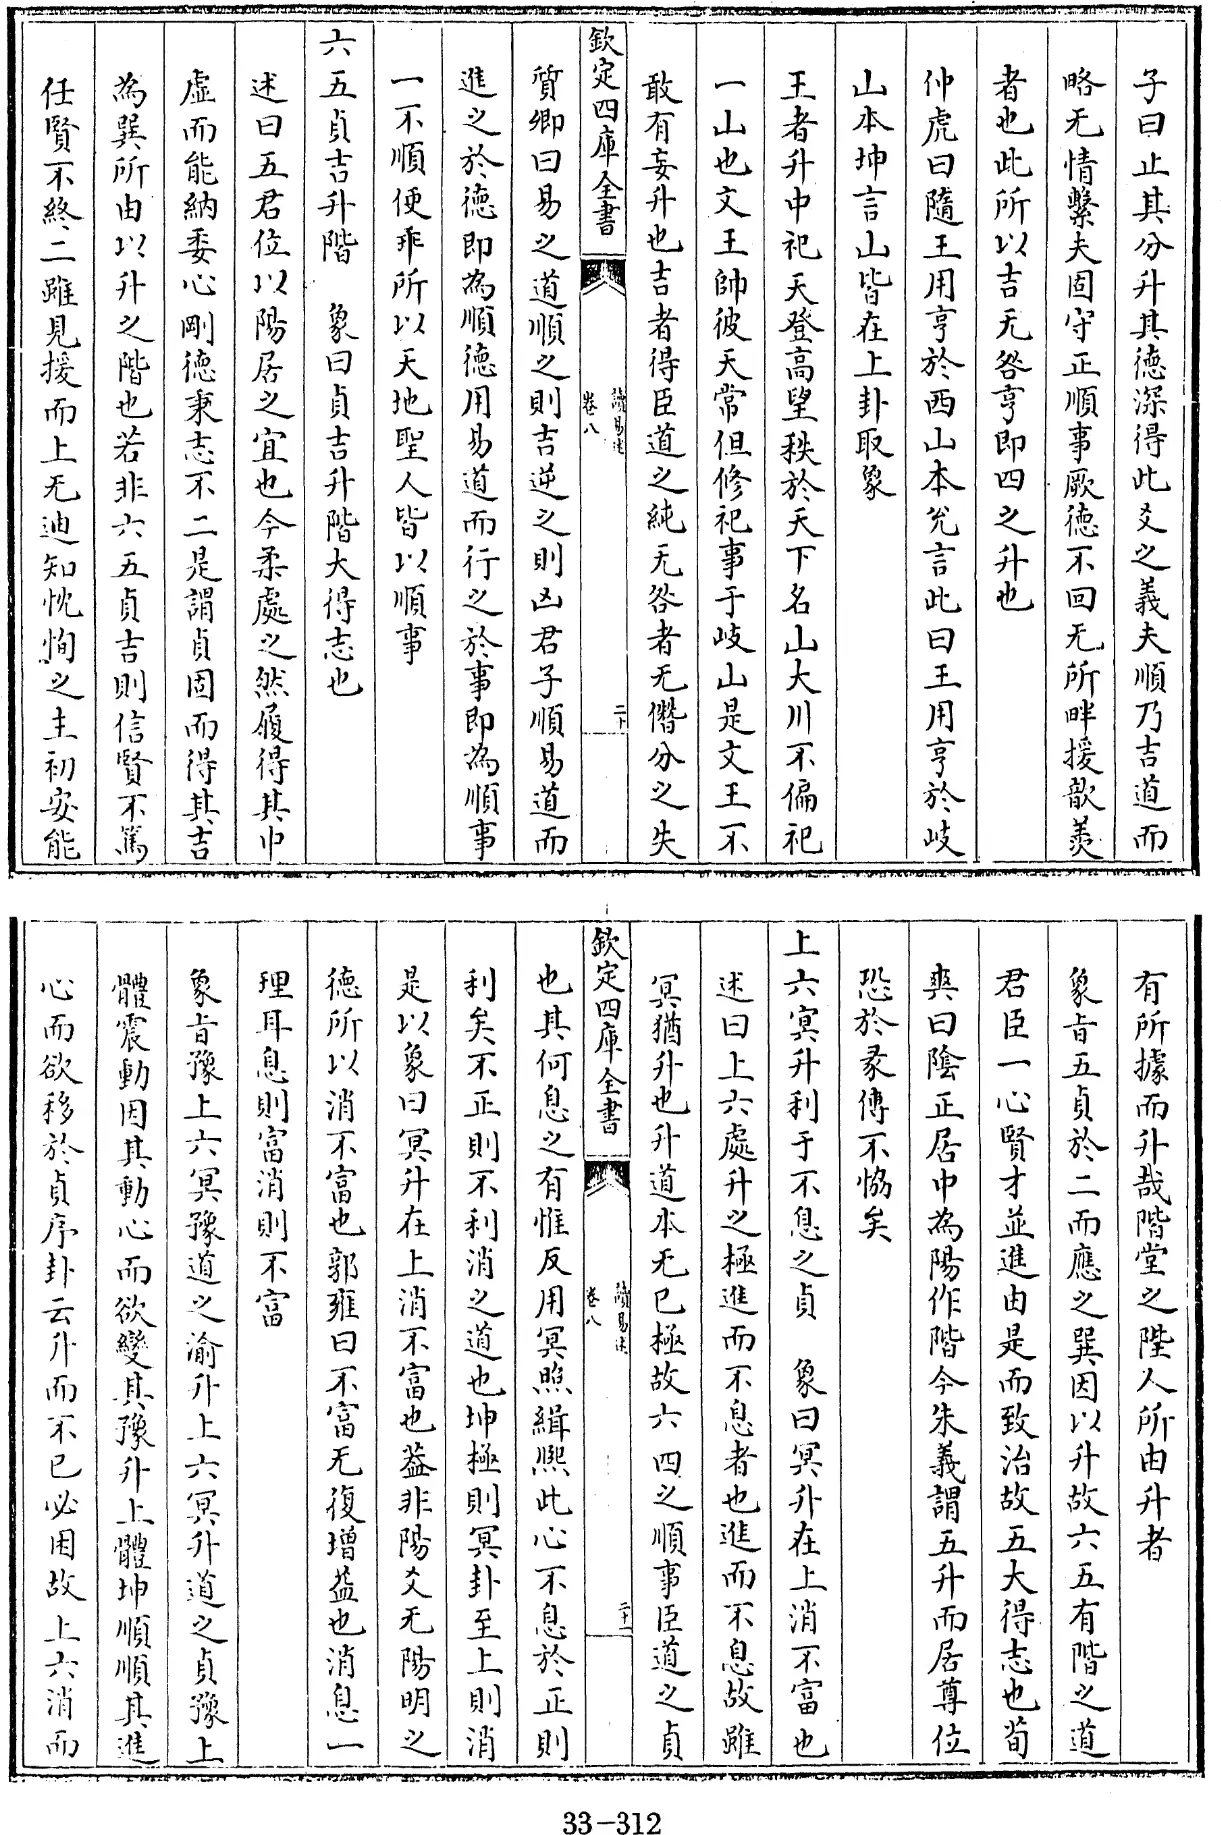 子曰止其分升其德深得此爻之義夫順乃吉道而
略无情繫夫固守正順事厥德不回无所畔援歆羨
者也此所以吉无咎亨即四之升也
仲虎曰隨王用亨於西山本兊言此曰王用亨於岐
山本坤言山皆在上卦取象
王者升中祀天登高望秩於天下名山大川不偏祀
一山也文王帥彼天常但修祀事于岐山是文王不
敢有妄升也吉者得臣道之純无咎者无僭分之失
欽定四庫全書
讀易述
卷八
二十
質卿曰易之道順之則吉逆之則凶君子順易道而
進之於德即為順德用易道而行之於事即為順事
一不順便乖所以天地聖人皆以順事
六五貞吉升階 象曰貞吉升階大得志也
述曰五君位以陽居之宜也今柔處之然履得其中
虛而能納委心剛德秉志不二是謂貞固而得其吉
為巽所由以升之階也若非六五貞吉則信賢不篤
任賢不終二雖見援而上无迪知忱恂之主初安能
有所據而升哉階堂之陛人所由升者
象旨五貞於二而應之巽因以升故六五有階之道
君臣一心賢才並進由是而致治故五大得志也荀
爽曰陰正居中為陽作階今朱義謂五升而居尊位
恐於彖傳不恊矣
上六冥升利于不息之貞 象曰冥升在上消不富也
述曰上六處升之極進而不息者也進而不息故雖
冥猶升也升道本无已極故六四之順事臣道之貞
欽定四庫全書
讀易述
卷八
二十一
也其何息之有惟反用冥照緝熙此心不息於正則
利矣不正則不利消之道也坤極則冥卦至上則消
是以象曰冥升在上消不富也葢非陽爻无陽明之
德所以消不富也郭雍曰不富无復增益也消息一
理耳息則富消則不富
象旨豫上六冥豫道之渝升上六冥升道之貞豫上
體震動因其動心而欲變其豫升上體坤順順其進
心而欲移於貞序卦云升而不已必困故上六消而
33-312